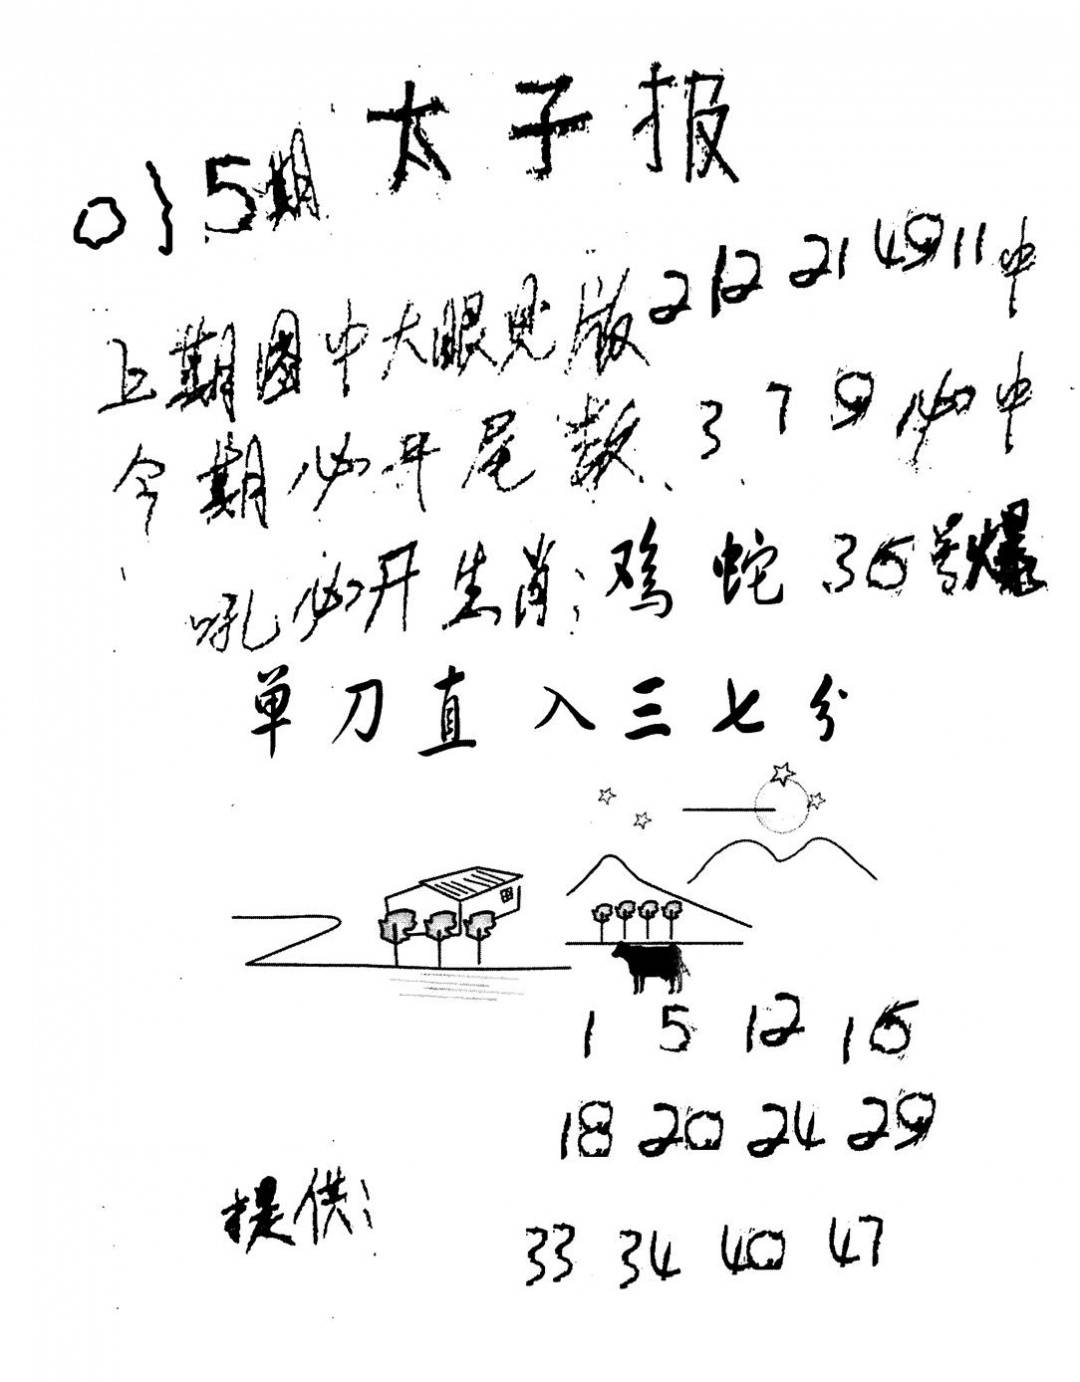 太子报
035期
上期图中大眼见版 2 12 21 49 11中
今期必开尾数.3 7 9必中
吼必开生肖:鸡 蛇 36号爆
单刀直入三七分
1 5 12 16
18 20 24 29
提供:
33 34 40 47